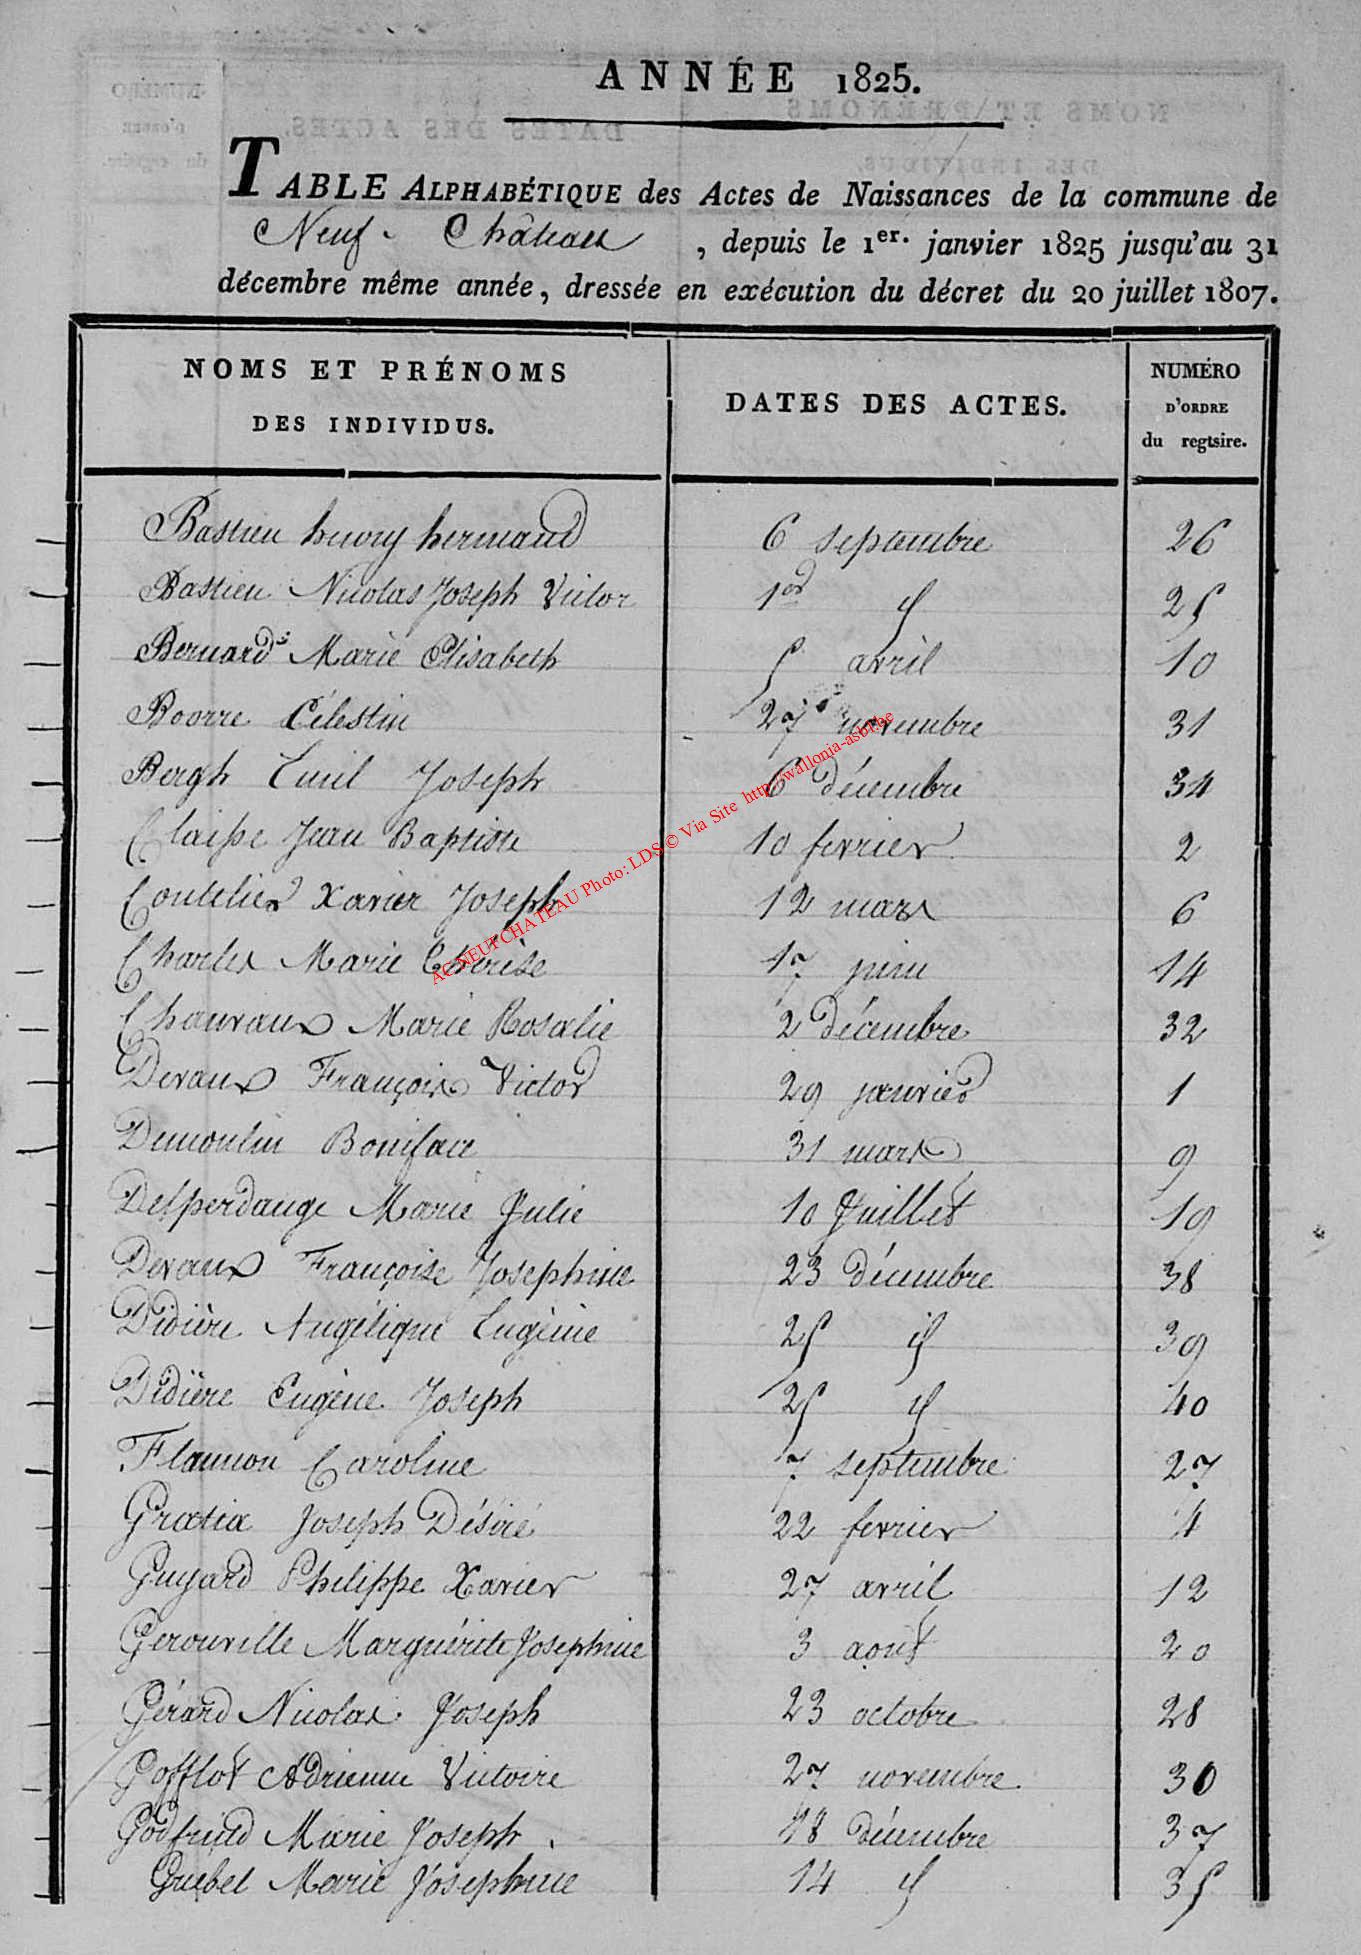 ANNÉE 1825.
TABLE ALPHABÉTIQUE des Actes de Naissances de la commune de
Neuf-Château , depuis le 1er. janvier 1825 jusqu'au 31
décembre même année, dressée en exécution du décret du 20 juillet 1807.
NOMS ET PRÉNOMS DES INDIVIDUS. DATES DES ACTES. NUMÉRO D'ORDRE du regtsire.
Bastien henry hermand 6 septembre 26
Bastien Nicolas Joseph Victor 1er 〃 25
Bernard Marie Elisabeth 5 avril 10
Boorre Célestin 27 novembre 31
Bergh Emil Joseph 6 décembre 34
Claisse Jean Baptiste 10 fevrier 2
Coutelier Xavier Joseph 12 mars 6
Charles Marie Thérèse 17 juin 14
Chauvaux Marie Rosalie 2 décembre 32
Devaux François Victor 29 janvier 1
Demoulin Boniface 31 mars 9
Desperdange Marie Julie 10 Juillet 19
Devaux Françoise Josephine 23 décembre 38
Didière Angélique Eugènie 25 〃 39
Didière Eugène Joseph 25 〃 40
Flamion Caroline 7 septembre 27
Gratia Joseph Désiré 22 fevrier 4
Guyard Philippe Xavier 27 avril 12
Gerouville Marguérite Josephine 3 août 20
Gérard Nicolas Joseph 23 octobre 28
Gofflot Adrienne Victoire 27 novembre 30
Godfrind Marie Joseph. 18 décembre 37
Guebel Marie Josephine 14 〃 35
AC NEUFCHATEAU Photo: LDS © Via Site http://wallonia-asbl.be